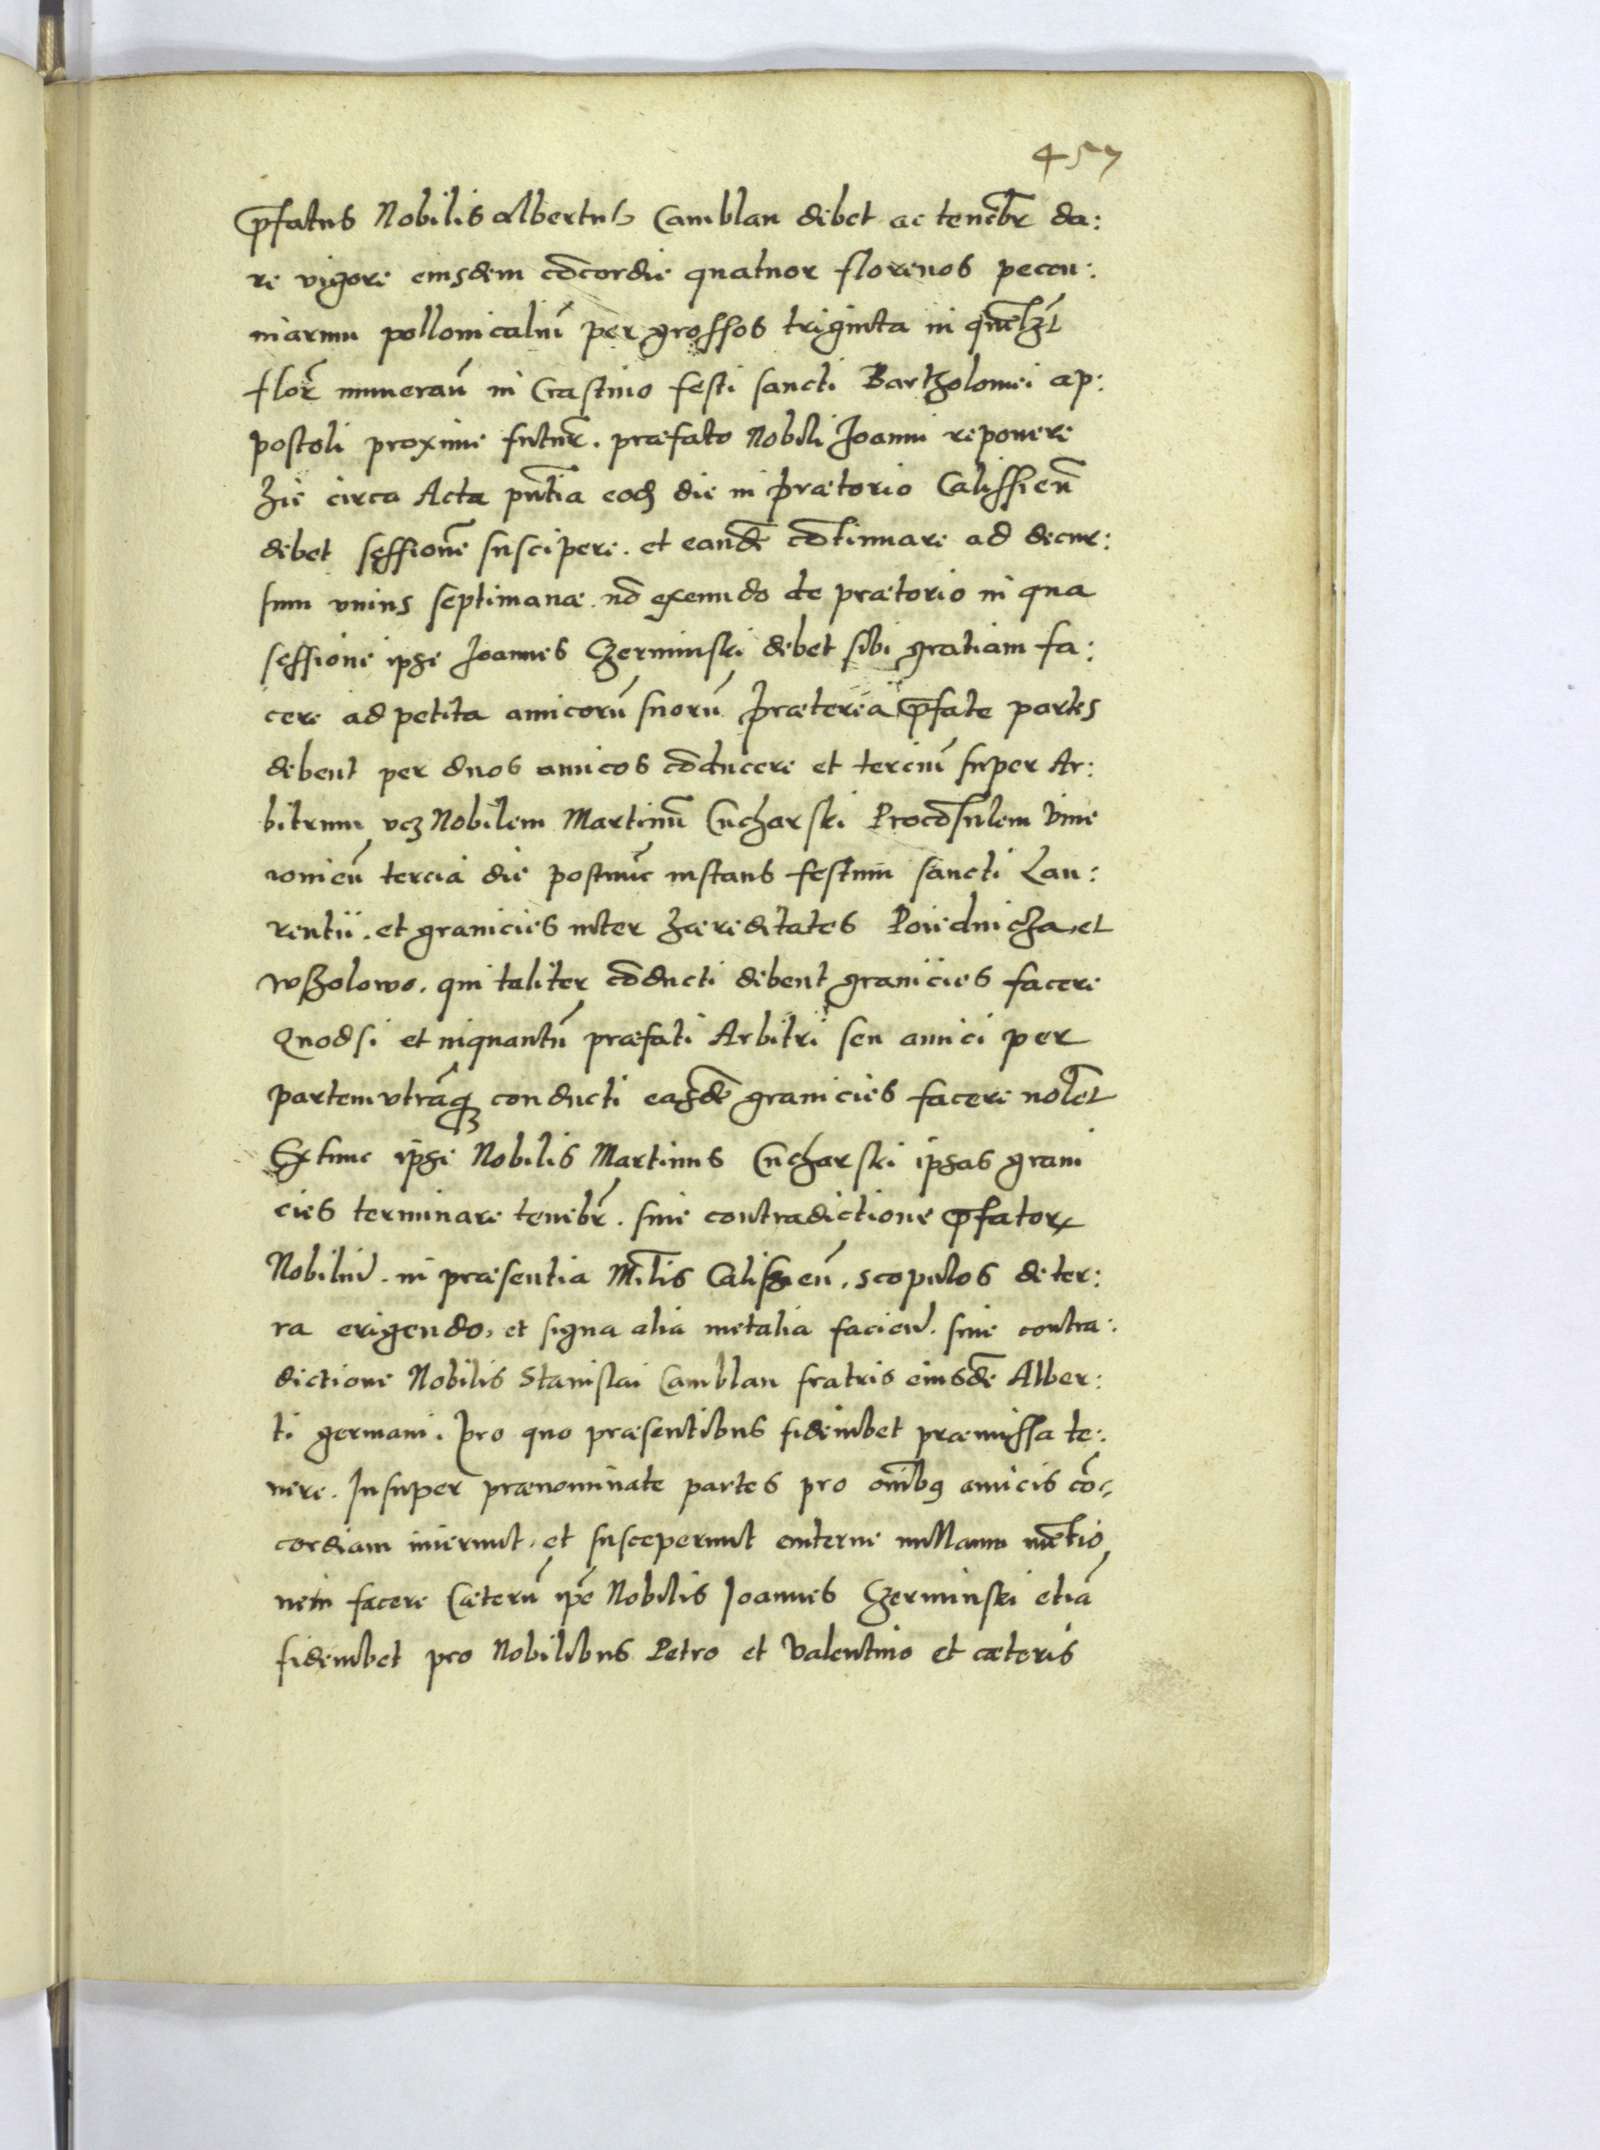 457
p̄fatus Nobilis Albertus Camblan debet ac tenebr̃ da:
re vigore eiusdem cōcordie quatuor florenos pecun:
niarum pollonicaliũ per grossos triginta in quẽlȝt
flor̃ numeraũ in Crastino festi sancti Bartholomei ap:
postoli proxime futur̃. præfato Nobili Joanni reponere
hic circa Acta pñtia eodȝ die in prætorio Calissieñ
debet sessionẽ suscipere. et eandẽ cōtinuare ad decur:
sum vnius septimanæ. nō exeundo de prætorio in qua
sessione ipse Joannes Czerminski debet sibi gratiam fa:
cere ad petita amicorũ suorũ Præterea p̄fate partes
debent per duos amicos cōducere et terciũ super Ar:
bitrum vcȝ Nobilem Martinũ Cucharski Procōsulem Vine
womieñ tercia die post nũc instans festum sancti Lau:
rentii. et granicies inter hæreditates Poiednicha et
wszolowo. qui taliter cōducti debent granicies facere
Quodsi et inquantũ præfati Arbitri seu amici per
partem vtrãqȝ conducti easdẽ granicies facere nolẽt
Extunc ipse Nobilis Martinus Cucharski ipsas grani
cies terminare tenebr̃. sine contradictione p̄fatoꝝ
Nobiliũ. in præsentia Mĩlis Caliszieñ. scopulos de ter:
ra erigendo, et signa alia metalia facieñ. sine contra:
dictione Nobilis Stanislai Camblan fratris eiusdẽ Alber:
ti germani. Pro quo præsentibus fideiubet præmissa te:
nere. Insuper prænominate partes pro oĩbꝰ amicis cõ:
cordiam inierunt, et susceperunt eviterne nullam mẽtio
nem facere Cæterũ ipẽ Nobilis Joannes Czerminski etiã
fideiubet pro Nobilibus Petro et Valentino et cæteris